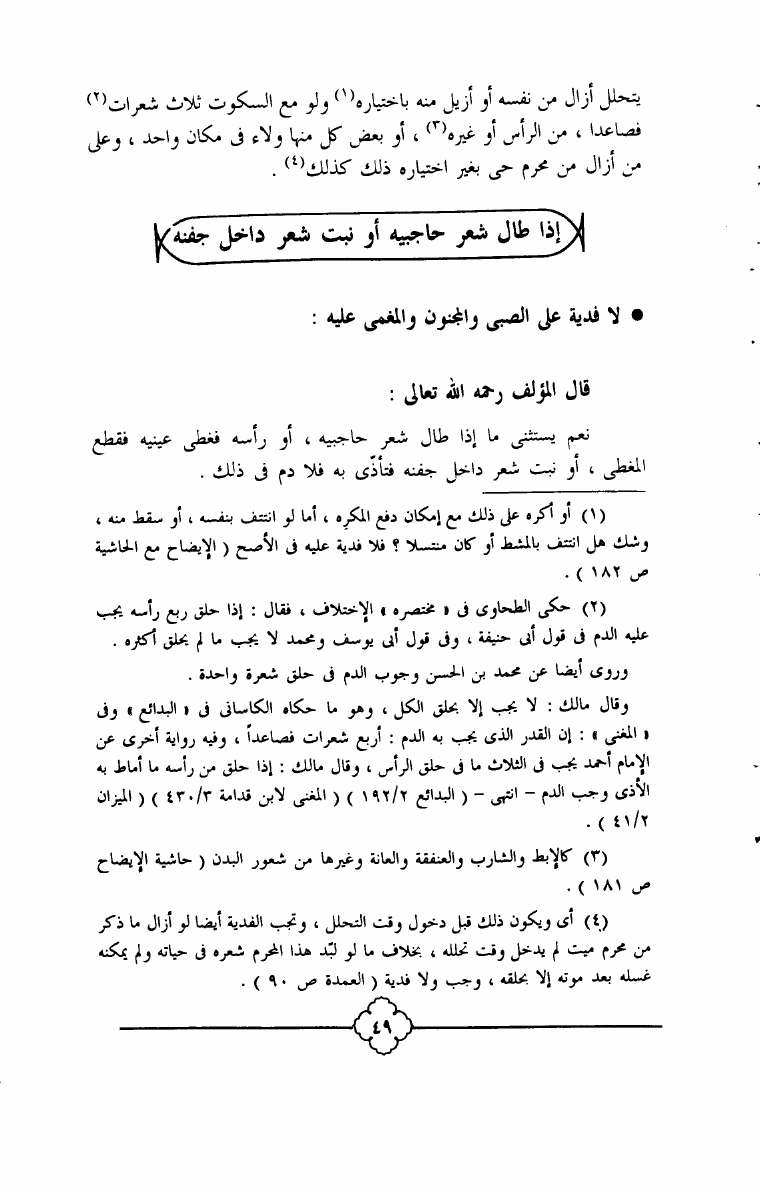 يتحلل أزال من نفسه أو أزيل منه باختياره(١) ولو مع السكوت ثلاث شعرات(٢)
فصاعدا ، من الرأس أو غيره(٣) ، أو بعض كل منها ولاء فى مكان واحد ، وعلى
من أزال من محرم حى بغير اختياره ذلك كذلك(٤) .
إذا طال شعر حاجبيه أو نبت شعر داخل جفنه
● لا فدية على الصبى والمجنون والمغمى عليه :
قال المؤلف رحمه الله تعالى :
نعم يستثنى ما إذا طال شعر حاجبيه ، أو رأسه فغطى عينيه فقطع
المغطى ، أو نبت شعر داخل جفنه فتأذّى به فلا دم فى ذلك .
(١) أو أكره على ذلك مع إمكان دفع المكره ، أما لو انتتف بنفسه ، أو سقط منه ،
وشك هل انتتف بالمشط أو كان منتسلا ؟ فلا فدية عليه فى الأصح ( الإيضاح مع الحاشية
ص ١٨٢ ) .
(٢) حكى الطحاوى فى « مختصره » الإختلاف ، فقال : إذا حلق ربع رأسه يجب
عليه الدم فى قول أبى حنيفة ، وفى قول أبى يوسف ومحمد لا يجب ما لم يحلق أكثره .
وروى أيضا عن محمد بن الحسن وجوب الدم فى حلق شعرة واحدة .
وقال مالك : لا يجب إلا بحلق الكل ، وهو ما حكاه الكاسانى فى « البدائع » وفى
« المغنى » : إن القدر الذى يجب به الدم : أربع شعرات فصاعداً ، وفيه رواية أخرى عن
الإمام أحمد يجب فى الثلاث ما فى حلق الرأس ، وقال مالك : إذا حلق من رأسه ما أماط به
الأذى وجب الدم – انتهى – ( البدائع ١٩٢/٢ ) ( المغنى لابن قدامة ٤٣٠/٣ ) ( الميزان
٤١/٢ ) .
(٣) كالإبط والشارب والعنفقة والعانة وغيرها من شعور البدن ( حاشية الإيضاح
ص ١٨١ ) .
(٤) أى ويكون ذلك قبل دخول وقت التحلل ، وتجب الفدية أيضا لو أزال ما ذكر
من محرم ميت لم يدخل وقت تحلله ، بخلاف ما لو لبّد هذا المحرم شعره فى حياته ولم يمكنه
غسله بعد موته إلا بحلقه ، وجب ولا فدية ( العمدة ص ٩٠ ) .
٤٩